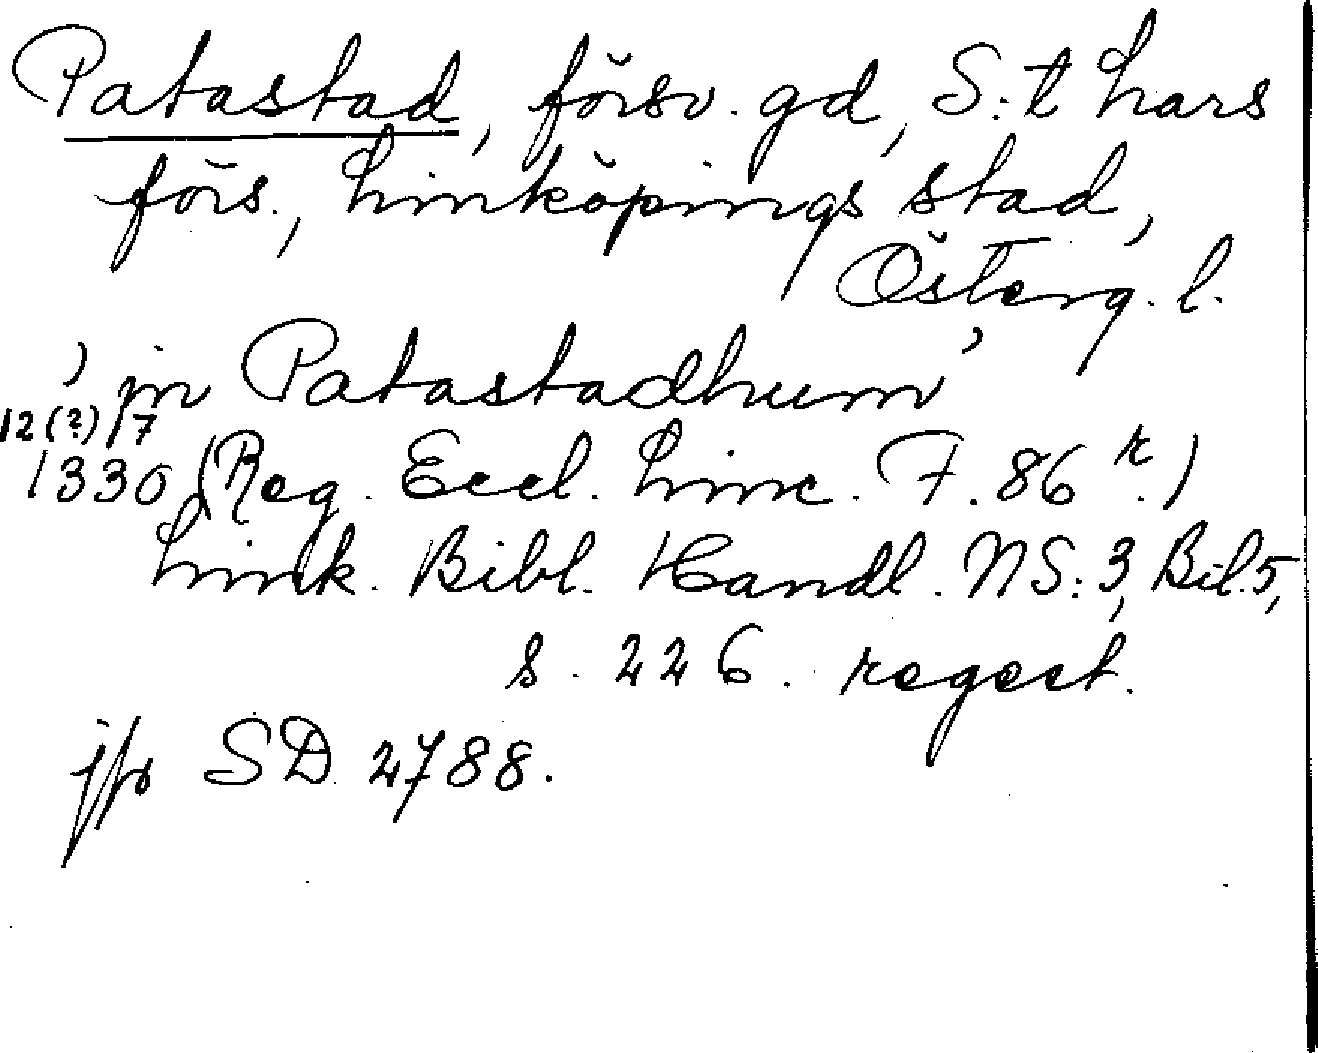 Patastad, försv. gd, S:t Lars
förs., Linköpings stad,
Österg. l.
, in Patastadhum,
12(?)/7
1330 (Reg. Eccl. Linc. F. 86 r.)
Link. Bibl. Handl. NS:3, Bil.5,
s. 226. regest.
jfr SD 2788.